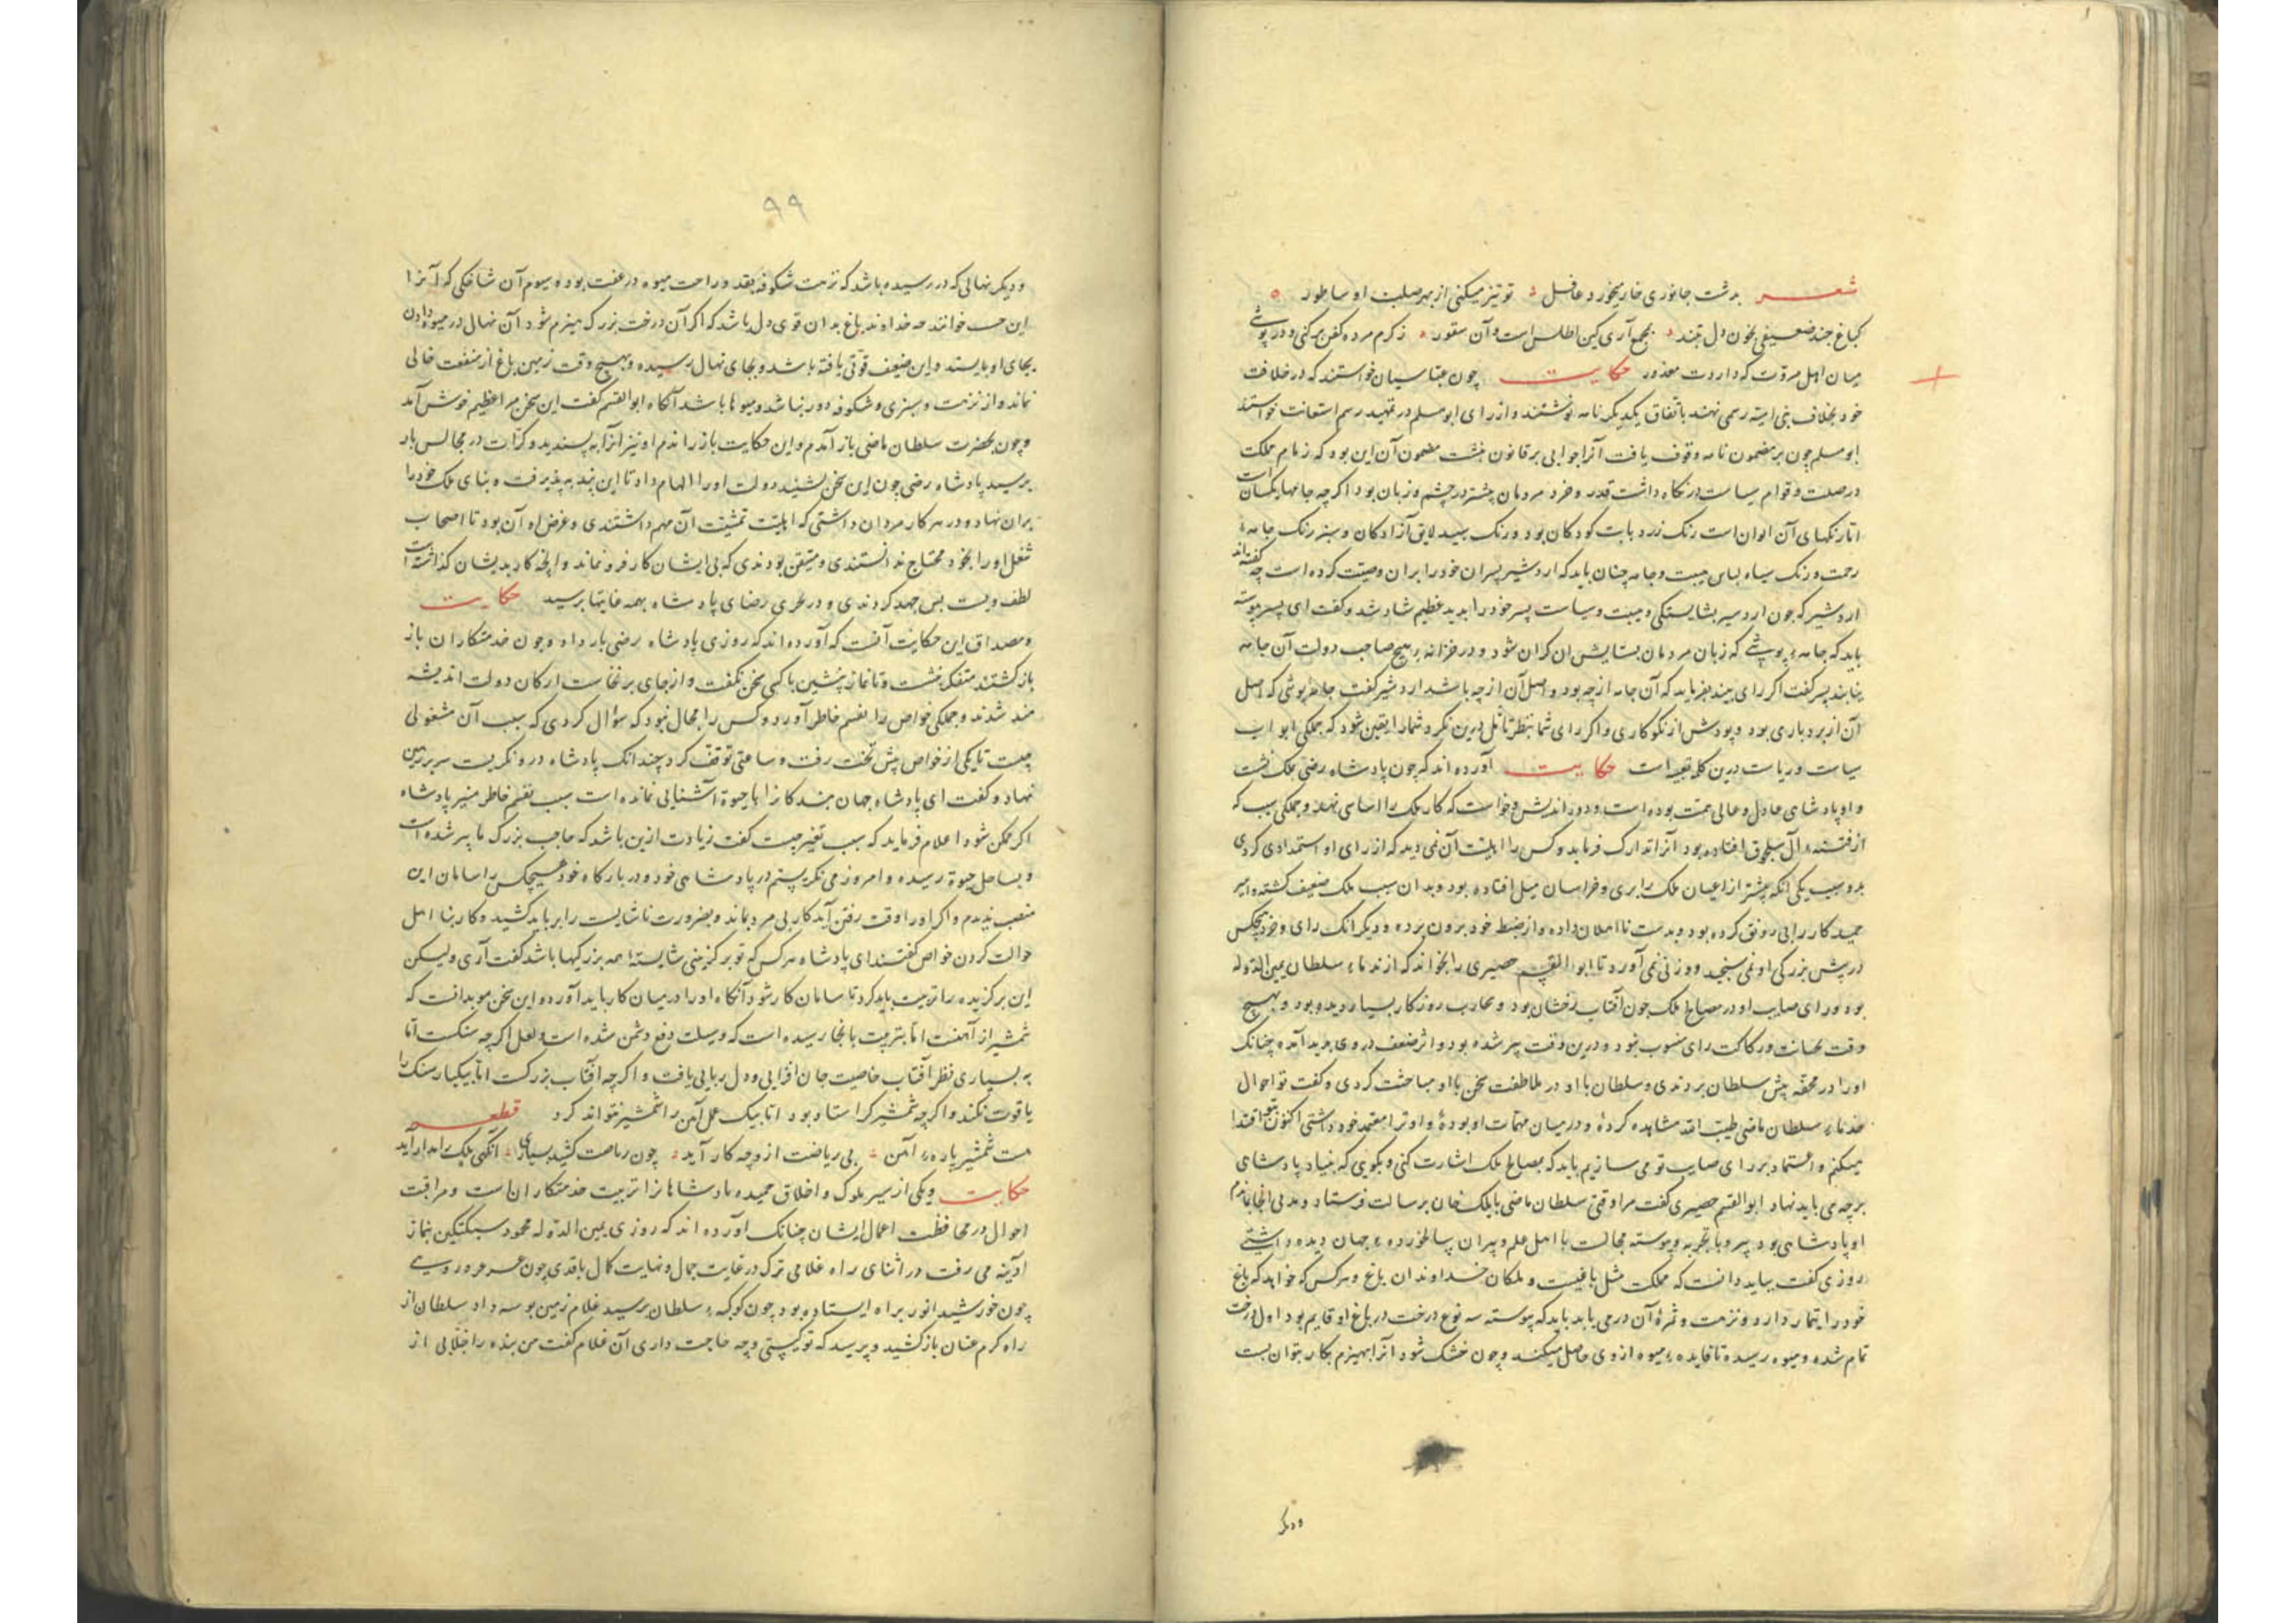 شعر بدشت جانوری خار میخورد غافل تو تیز میکنی از بهر صلب او ساطور
کباغ چند ضعیفی بخون دل بتند بجمع آری کین اطلس است و آن سقور ز کرم مرده کفن برکنی و در پوشی
میان اهل مروت که داردت معذور حکایت چون عباسیان خواستند که در خلافت
خود بخلاف بنی امیه رسمی نهند باتفاق یکدیگر نامه نوشتند و از رای ابو مسلم در تمهید رسم استعانت خواستند
ابو مسلم چون بر مضمون نامه وقوف یافت آنرا جوابی بر قانون نبشت مضمون آن این بود که زمام مملکت
در صلت و قوام سیاست در نگاه داشت قدر و خرد مردمان بیشتر در چشم و زبان بود اگرچه جامها یکسان است
اما رنگهای آن الوان است رنگ زرد بابت کودکان بود و رنگ سپید لایق آزادکان و سبز رنگ جامه
رحمت و رنگ سیاه لباس هیبت و جامه چنان باید که اردشیر پسران خود را بران وصیت کرده است چه گفته اند
اردشیر که چون اردسیر بشایستگی و هیبت و سیاست پسر خود را بدید عظیم شاد شد و گفت ای پسر پیوسته
باید که جامه پوشی که زبان مردمان بستایش آن گران شود و در خزانه هیچ صاحب دولت آن جامه
نیابند پسر گفت اگر رای بیند بفرماید که آن جامه از چه بود و اصل آن از چه باشد اردشیر گفت جامه پوشی که اصل
آن از بردباری بود و پودش از نکوکاری و اگر رای شما بنظر تأمل درین نگرد شما را یقین شود که جملگی ابواب
سیاست و ریاست درین کلمه تعبیه است حکایت آورده اند که چون پادشاه رضی بملک نشست
و او پادشاهی عادل و عالی همت بوده است و دوراندیش و خواست که کار ملک را اساسی نهد و جملگی سبب که
از فتنه آل سلجوق افتاده بود آنرا تدارک فرماید و کس را اهلیت آن نمی دید که از رای او استمدادی کردی
بدو سبب یکی آنکه بیشتر از اعیان ملک را بری و خراسان میل افتاده بود و بدان سبب ملک ضعیف گشته و امیر
حمید کار را بی رونق کرده بود و بدست نااهلان داده و از ضبط خود برون برده و دیگر آنک رای و خرد هیچکس
در پیش بزرگی او نمی سنجید و وزنی نمی آورد تا ابو القسم حصیری را بخواند که از ندماء سلطان یمین الدوله
بود و رای صایب او در مصالح ملک چون آفتاب رخشان بود و تجارب روزگار بسیار دیده بود و بهیچ
وقت بخیانت و رکاکت رای منسوب نبود و درین وقت پیر شده بود و اثر ضعف در وی پدید آمده چنانک
او را در محفه پیش سلطان بردندی و سلطان با او در ملاطفت سخن با او مباحثت کردی و گفت تو احوال
خدماء سلطان ماضی طیب الله مشاهده کرده و در میان مهمات او بوده و او ترا معتمد خود داشتی اکنون بتو اقتدا
میکنم و اعتماد بر رای صایب تو می سازیم باید که بمصالح ملک اشارت کنی و بگویی که بنیاد پادشاهی
بر چه می باید نهاد ابو القسم حصیری گفت مرا وقتی سلطان ماضی بایلک خان برسالت فرستاد و مدتی آنجا بماندم
او پادشاهی بود پیر و با تجربه و پیوسته مجالست با اهل علم و پیران سالخورده و جهان دیده داشتی
روزی گفت بباید دانست که مملکت مثل باغیست و ملکان خداوندان باغ و هر کس که خواهد که باغ
خود را بتیمار دارد و نزهت و ثمره آن در می یابد باید که پیوسته سه نوع درخت در باغ او قایم بود اول درخت
تمام شده و میوه رسیده تا فایده میوه از وی حاصل میکند و چون خشک شود آنرا بهیزم بکار بتوان بست
و دیگر
۹۹
و دیگر نهالی که در رسیده باشد که نزهت شکوفه بنقد و راحت میوه در عقب بود و سیوم آن شاخکی که آنرا
این حسب خوانند که خداوند باغ بدان قوی دل باشد که اگر آن درخت بزرگ هیزم شود آن نهال در میوه دادن
بجای او بایستد و این ضعیف قوتی یافته باشد و بجای نهال رسیده و بهیچ وقت زمین باغ از منفعت خالی
نماند و از نزهت و سبزی و شکوفه دور نباشد و میوها باشد آنگاه ابو القسم گفت این سخن مرا عظیم خوش آمد
و چون بحضرت سلطان ماضی باز آمدم و این حکایت باز راندم او نیز آنرا به پسندید و کرات در مجالس بار
برسید پادشاه رضی چون این سخن بشنید دولت او را الهام داد تا این پند به پذیرفت و بنای ملک خود را
بران نهاد و در هر کار مردان داشتی که اهلیت تمشیت آن مهم داشتندی و غرض او آن بود تا اصحاب
شغل او را بخود محتاج ندانستندی و متیقن بودندی که بی ایشان کار فرو نماند و آنچه کار بدیشان گذاشته است
لطف و بست بس جهد کردندی و در تحری رضای پادشاه بهمه غایتها برسید حکایت
و مصداق این حکایت آنست که آورده اند که روزی پادشاه رضی بار داد و چون خدمتکاران باز
بازگشتند متفکر بنشست و تا نماز پیشین با کسی سخن نگفت و از جای برنخاست ارکان دولت اندیشه
مند شدند و جملگی خواص را بقسم خاطر آورد و کس را مجال نبود که سؤال کردی که سبب آن مشغولی
چیست تا یکی از خواص پیش تخت رفت و ساعتی توقف کرد چندانک پادشاه درو نگریست سر بر زمین
نهاد و گفت ای پادشاه جهان بندگانرا با حیوة آشنایی نمانده است سبب تقسم خاطر منیر پادشاه
اگر ممکن شود اعلام فرماید که سبب تغیر چیست گفت زیادت ازین باشد که حاجب بزرگ ما پیر شده است
و بساحل حیوة رسیده و امروز می نگریستم در پادشاهی خود و در بارگاه خود هیچکس را سامان این
منصب ندیدم و اگر او را وقت رفتن آید کار بی مرد بماند و بضرورت ناشایست را بر باید کشید و کار بنااهل
حوالت کردن خواص گفتند ای پادشاه هر کس که تو برگزینی شایسته همه بزرگیها باشد گفت آری ولیکن
این برگزیده را تربیت باید کرد تا سامان کار شود آنگاه او را در میان کار باید آورد و این سخن موبدانست که
شمشیر از آهنست اما بتربیت بانجا رسیده است که وسیلت دفع دشمن شده است و لعل اگرچه سنگست اما
به بسیاری نظر آفتاب خاصیت جان افزایی و دل ربایی یافت و اگرچه آفتاب بزرگست اما بیکبار سنگ را
یاقوت نکند و اگرچه شمشیر گر استاد بود اما بیک عمل آهن را شمشیر نتواند کرد قطعه
هست شمشیر پاره آهن بی ریاضت ازو چه کار آید چون ریاضت کشید بسیاری آنگهی ملک را مدار آید
حکایت و یکی از سیر ملوک و اخلاق حمیده پادشاهانرا تربیت خدمتکاران است و مراقبت
احوال در محافظت اعمال ایشان چنانک آورده اند که روزی یمین الدوله محمود سبکتکین بنماز
آدینه می رفت در اثنای راه غلامی ترک در غایت جمال و نهایت کمال با قدی چون سرو و رویی
چون خورشید انور بر راه ایستاده بود چون کوکبه سلطان برسید غلام زمین بوسه داد سلطان از
راه کرم عنان باز کشید و پرسید که تو کیستی و چه حاجت داری آن غلام گفت من بنده را جلابی از